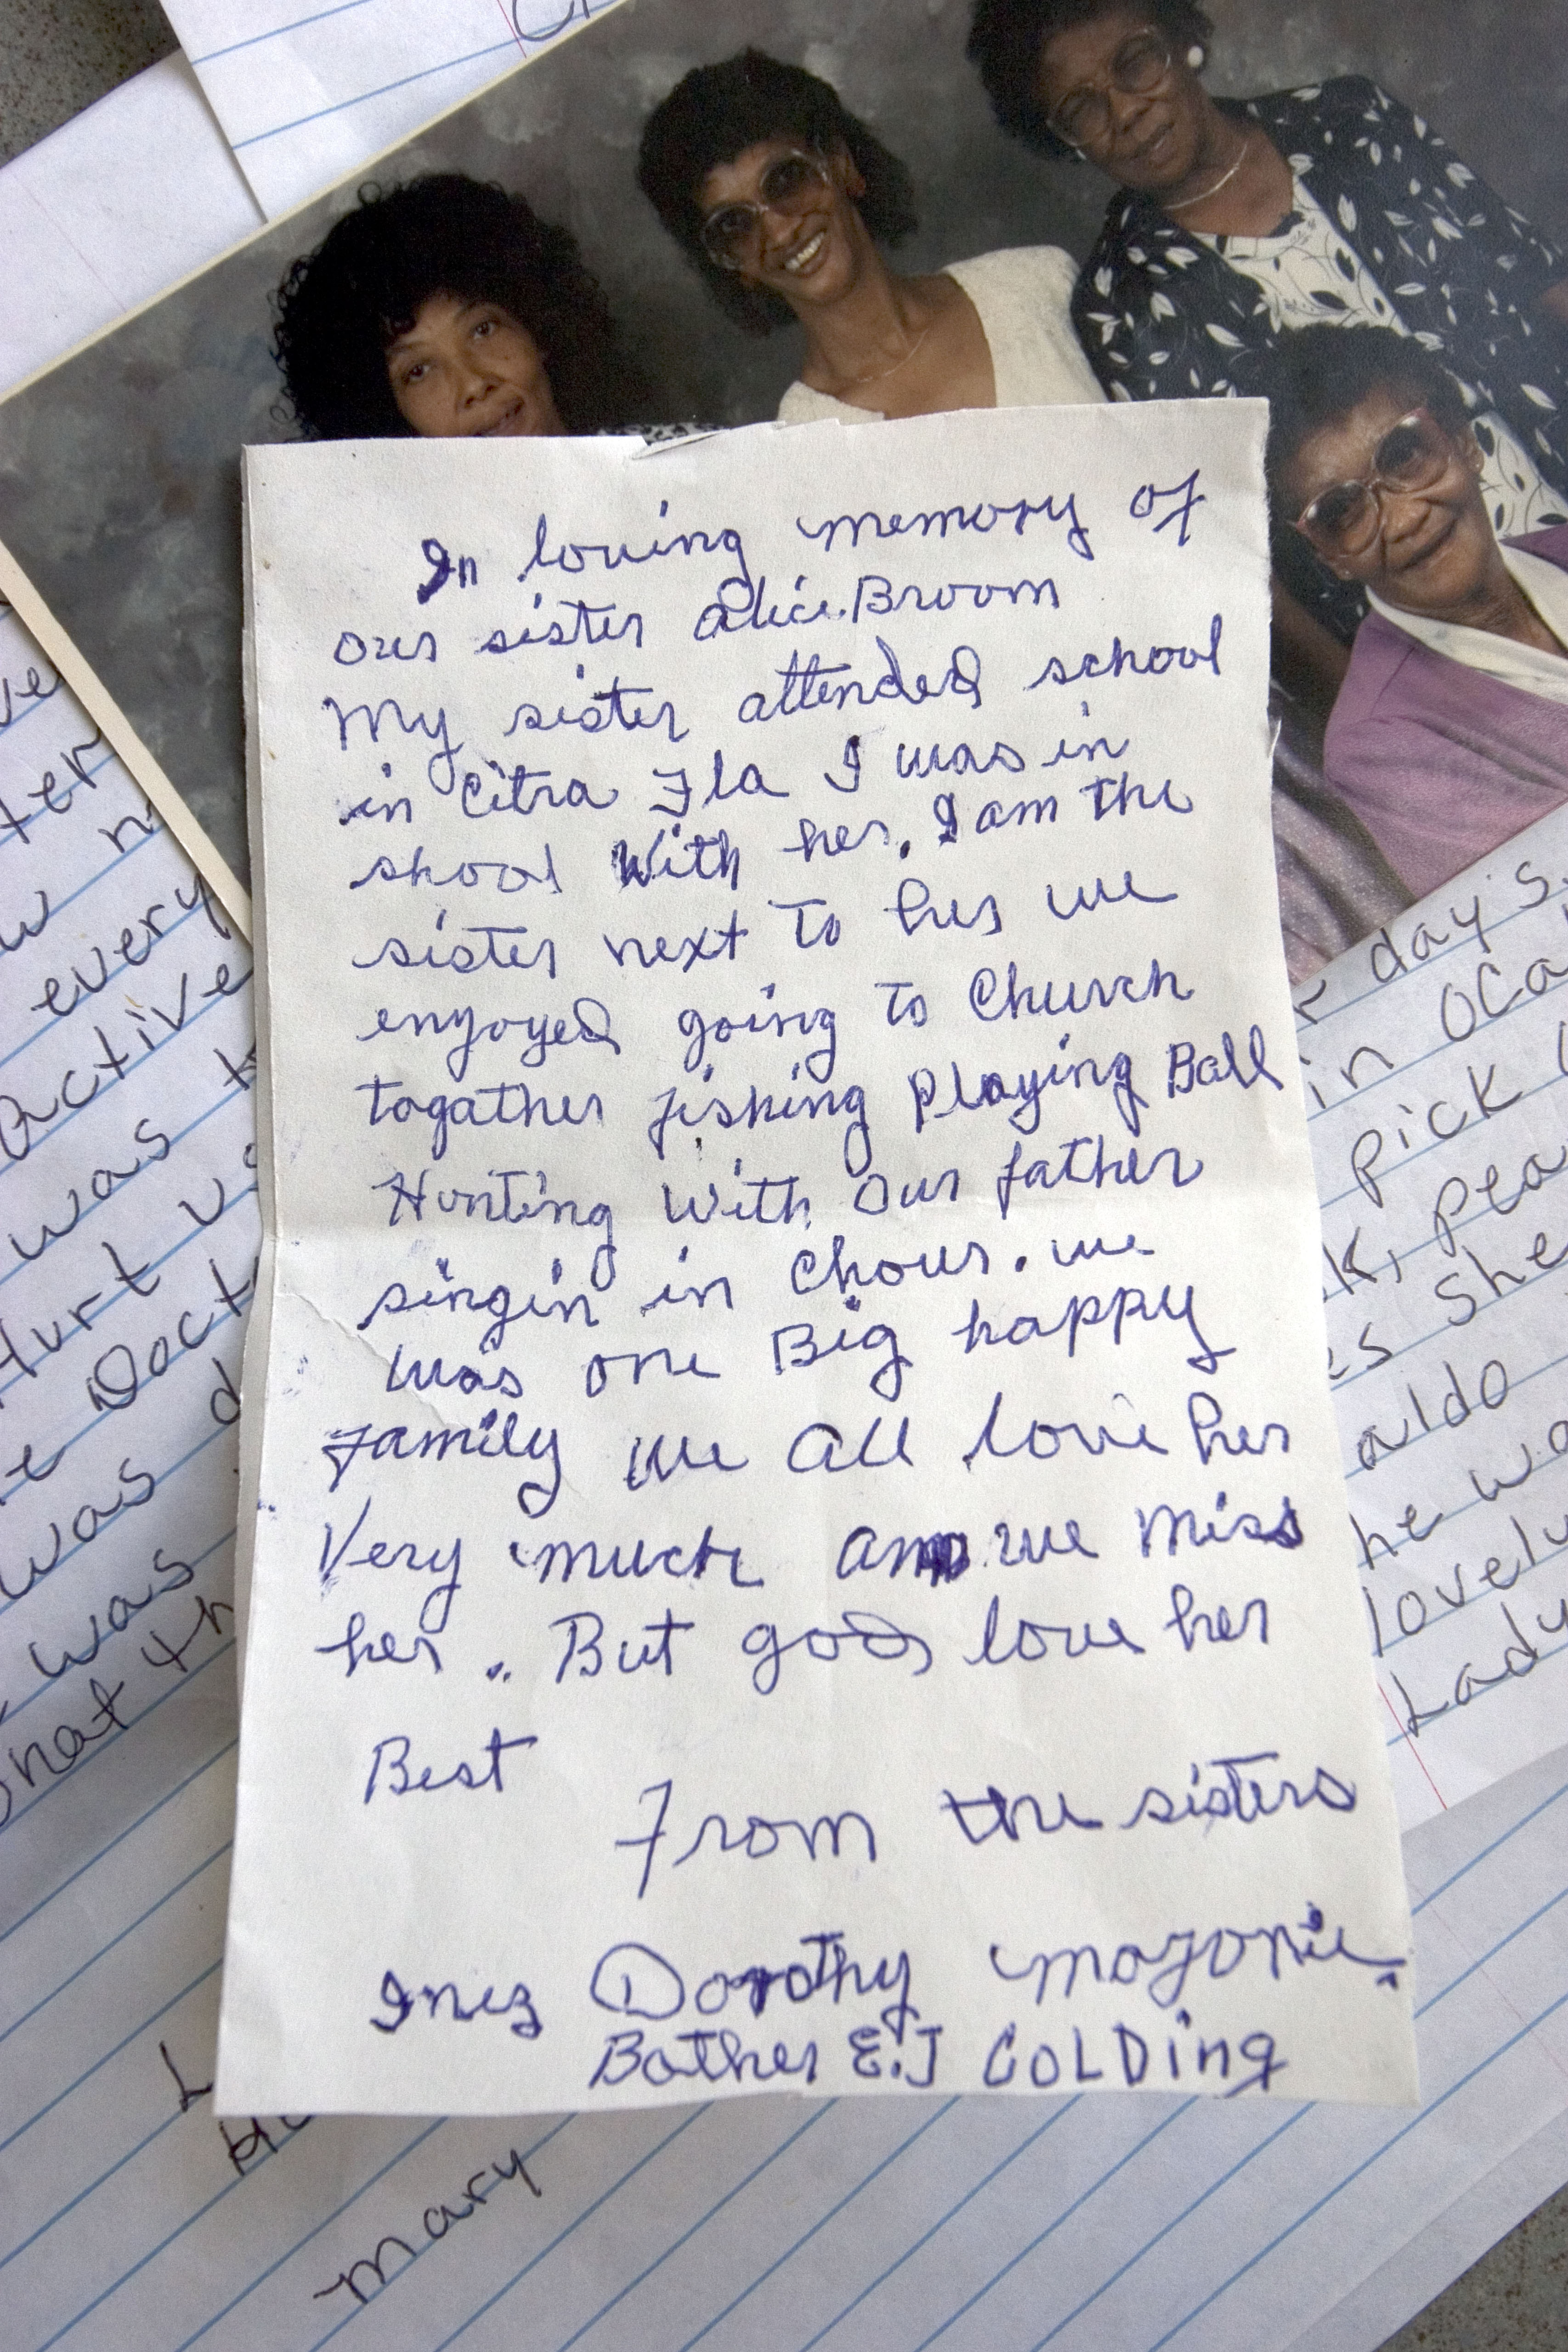 In loving memory of
our sister Alice. Broom
My sister attended school
in Citra Fla I was in
shool With her. I am the
sister next to her we
enyoyed going to Church
togather fishing Playing Ball
Hunting With our father
singin in Chour. we
was one Big happy
family we all love her
Very much and we miss
her.. But god love her
Best
From the sisters
Inez Dorothy Mojorie.
Bother E.J GOLDing
ter
every
Active
was
Hurt us
Doct
was d
was
what th
Mary
r day's.
in Oca
pick
k, pea
es she
aldo
he wa
lovely
Lady